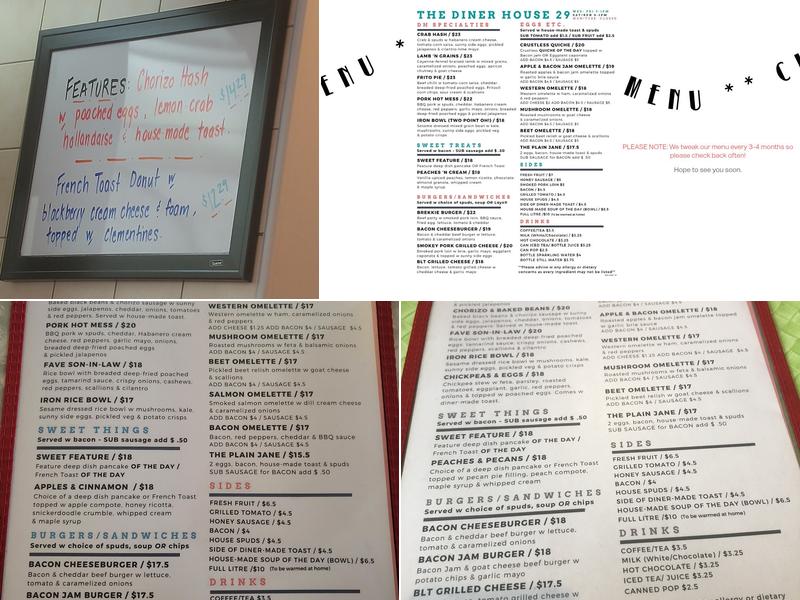 FEATURES: Chorizo Hash
w poached eggs, lemon crab
hollandaise & house made toast.
$14.29
French Toast Donut w
blackberry cream cheese & foam,
topped w clementines.
$12.29
THE DINER HOUSE 29
DH SPECIALTIES
CRAB HASH / $23
Crab & spuds w habanero cream cheese,
tomato corn salsa, sunny side eggs, pickled
jalapenos & cilantro-lime mayo
LAMB 'N GRAINS / $23
FRITO PIE / $23
PORK HOT MESS / $22
BBQ pork w spuds, cheddar, Habanero cream
cheese, red peppers, garlic mayo, onions, breaded
deep-fried poached eggs & pickled jalapenos
IRON BOWL (TWO POINT OH!) / $18
SWEET TREATS
Served w bacon - SUB sausage add $ .50
SWEET FEATURE / $18
Feature deep dish pancake OR French Toast
PEACHES 'N CREAM / $18
Vanilla spiced peaches, lemon ricotta, chocolate
almond granola, whipped cream
& maple syrup
BURGERS/SANDWICHES
Served w choice of spuds, soup OR
BREKKIE BURGER / $22
BACON CHEESEBURGER / $19
Bacon & cheddar beef burger w lettuce,
tomato & caramelized onions
SMOKEY PORK GRILLED CHEESE / $20
BLT GRILLED CHEESE / $18
Bacon, lettuce, tomato grilled cheese w
cheddar cheese & garlic mayo
EGGS ETC.
Served w house-made toast & spuds
SUB TOMATO add $1.5 / SUB FRUIT add $2.5
CRUSTLESS QUICHE / $20
APPLE & BACON OMELETTE / $19
WESTERN OMELETTE / $18
MUSHROOM OMELETTE / $18
BEET OMELETTE / $18
THE PLAIN JANE / $17.5
2 eggs, bacon, house-made toast & spuds
SUB SAUSAGE for BACON add $ .50
SIDES
FRESH FRUIT / $7
HONEY SAUSAGE / $5
SMOKED PORK LOIN $5
BACON / $4.5
GRILLED TOMATO / $4.5
HOUSE SPUDS / $4.5
SIDE OF DINER-MADE TOAST / $4.5
HOUSE MADE SOUP OF THE DAY (BOWL) / $6.5
FULL LITRE / $10 (To be warmed at home)
DRINKS
COFFEE/TEA $3.5
MILK (White/Chocolate) / $3.25
HOT CHOCOLATE / $3.25
CAN ICED TEA/ BOTTLE JUICE $3.25
CANNED POP $2.5
BOTTLE SPARKLING WATER $4
BOTTLE STILL WATER $2.75
**Please advise w any allergy or dietary
concerns as every ingredient may not be listed**
ENU *
MENU ** C
PLEASE NOTE: We tweak our menu every 3-4 months so
please check back often!
Hope to see you soon.
Baked black beans & chorizo sausage w sunny
side eggs, cheddar, onions, tomatoes
& red peppers. Served w house made toast.
PORK HOT MESS / $20
BBQ pork w spuds, cheddar, Habanero cream
cheese, red peppers, garlic mayo, onions,
breaded deep-fried poached eggs
& pickled jalapenos
FAVE SON-IN-LAW / $18
Rice bowl with breaded deep-fried poached
eggs, tamarind sauce, crispy onions, cashews,
red peppers, scallions & cilantro
IRON RICE BOWL / $17
Sesame dressed rice bowl w mushrooms, kale,
sunny side eggs, pickled veg & potato crisps
SWEET THINGS
Served w bacon - SUB sausage add $ .50
SWEET FEATURE / $18
Feature deep dish pancake OF THE DAY /
French Toast OF THE DAY
APPLES & CINNAMON / $18
Choice of a deep dish pancake or French Toast
topped w apple compote, honey ricotta,
snickerdoodle crumble, whipped cream
& maple syrup
BURGERS/SANDWICHES
Served w choice of spuds, soup OR chips
BACON CHEESEBURGER / $17.5
Bacon & cheddar beef burger w lettuce,
tomato & caramelized onions
BACON JAM BURGER / $17.5
WESTERN OMELETTE / $17
Western omelette w ham, caramelized onions
& red peppers
ADD CHEESE $1.25 ADD BACON $4 / SAUSAGE $4.5
MUSHROOM OMELETTE / $17
Roasted mushrooms w feta & balsamic onions
ADD BACON $4 / SAUSAGE $4.5
BEET OMELETTE / $17
Pickled beet relish omelette w goat cheese
& scallions
ADD BACON $4 / SAUSAGE $4.5
SALMON OMELETTE / $17
Smoked salmon omelette w dill cream cheese
& caramelized onions
ADD BACON $4 / SAUSAGE $4.5
BACON OMELETTE / $17
Bacon, red peppers, cheddar & BBQ sauce
ADD BACON $4 / SAUSAGE $4.5
THE PLAIN JANE / $15.5
2 eggs, bacon, house-made toast & spuds
SUB SAUSAGE for BACON add $ .50
SIDES
FRESH FRUIT / $6.5
GRILLED TOMATO / $4.5
HONEY SAUSAGE / $4.5
BACON / $4
HOUSE SPUDS / $4.5
SIDE OF DINER-MADE TOAST / $4.5
HOUSE-MADE SOUP OF THE DAY (BOWL) / $6.5
FULL LITRE / $10 (To be warmed at home)
DRINKS
COFFEE/TEA $3.5
& pickled jalapenos
CHORIZO & BAKED BEANS / $20
Baked black beans & chorizo sausage w sunny
side eggs, cheddar, onions, tomatoes
& red peppers. Served w house-made toast.
FAVE SON-IN-LAW / $20
Rice bowl with breaded deep-fried poached
eggs, tamarind sauce, crispy onions, cashews,
red peppers, scallions & cilantro
IRON RICE BOWL / $18
Sesame dressed rice bowl w mushrooms, kale,
sunny side eggs, pickled veg & potato crisps
CHICKPEAS & EGGS / $18
Chickpea stew w feta, parsley, roasted
tomatoes, eggplant, garlic, red peppers,
onions & topped w poached eggs. Comes w
diner-made toast.
SWEET THINGS
Served w bacon - SUB sausage add $ .50
SWEET FEATURE / $18
Feature deep dish pancake OF THE DAY /
French Toast OF THE DAY
PEACHES & PECANS / $18
Choice of a deep dish pancake or French Toast
topped w pecan pie filling, peach compote,
maple syrup & whipped cream
BURGERS/SANDWICHES
Served w choice of spuds, soup OR chips
BACON CHEESEBURGER / $18
Bacon & cheddar beef burger w lettuce,
tomato & caramelized onions
BACON JAM BURGER / $18
Bacon Jam & goat cheese beef burger w
potato chips & garlic mayo
BLT GRILLED CHEESE / $17.5
tomato grilled cheese w
APPLE & BACON OMELETTE / $18
Roasted apples & bacon jam omelette topped
w garlic brie sauce
ADD BACON $4 / SAUSAGE $4.5
WESTERN OMELETTE / $17
Western omelette w ham, caramelized onions
& red peppers
ADD CHEESE $1.25 ADD BACON $4 / SAUSAGE $4.5
MUSHROOM OMELETTE / $17
Roasted mushrooms w feta & balsamic onions
ADD BACON $4 / SAUSAGE $4.5
BEET OMELETTE / $17
Pickled beet relish omelette w goat cheese
& scallions
ADD BACON $4 / SAUSAGE $4.5
THE PLAIN JANE / $17
2 eggs, bacon, house-made toast & spuds
SUB SAUSAGE for BACON add $ .50
SIDES
FRESH FRUIT / $6.5
GRILLED TOMATO / $4.5
HONEY SAUSAGE / $4.5
BACON / $4
HOUSE SPUDS / $4.5
SIDE OF DINER-MADE TOAST / $4.5
HOUSE-MADE SOUP OF THE DAY (BOWL) / $6.5
FULL LITRE / $10 (To be warmed at home)
DRINKS
COFFEE/TEA $3.5
MILK (White/Chocolate) / $3.25
HOT CHOCOLATE / $3.25
ICED TEA/ JUICE $3.25
CANNED POP $2.5
allergy or dietary